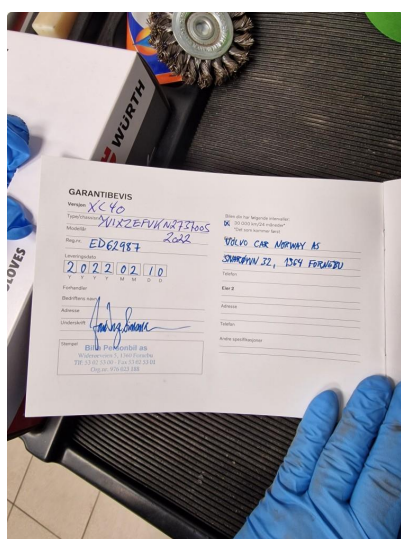 WÜRTH
GLOVES
GARANTIBEVIS
Versjon XC40
Type/chassisnr
Modellår 2022
Reg.nr. ED62987
Leveringsdato
2 0 2 2 0 2 1 0
Y Y Y Y M M D D
Forhandler
Bedriftens navn
Adresse
Underskrift
Stempel
Bilia Personbil as
Tlf
Org.nr.
Bilen din har følgende intervaller:
30 000 km/24 måneder*
*Det som kommer først
VOLVO CAR NORWAY AS
SNARØYVN 32, 1364 FORNEBU
Telefon
Eier 2
Adresse
Telefon
Andre spesifikasjoner